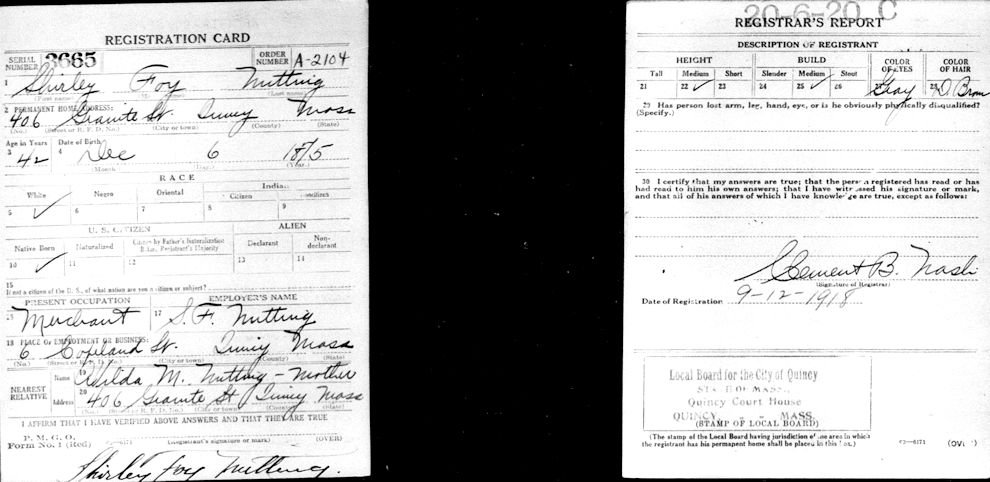 REGISTRATION CARD
SERIAL NUMBER 3665 ORDER NUMBER A-2104
1 Shirley Foy Nutting
(First name) (Last name)
2 PERMANENT HOME ADDRESS:
406 Granite St. Quincy Mass
(No.) (Street or R. F. D. No.) (City or town) (County) (State)
Age in Years Date of Birth
3 42 4 Dec 6 1875
Month Day Year
RACE
White Negro Oriental Indian
Citizen Noncitizen
5 ✓ 6 7 8 9
U. S. CITIZEN ALIEN
Native Born Naturalized Citizen by Father's Naturalization Before Registrant's Majority Declarant Non-declarant
10 ✓ 11 12 13 14
15
If not a citizen of the U. S., of what nation are you a citizen or subject?
PRESENT OCCUPATION EMPLOYER'S NAME
16 Merchant 17 S. F. Nutting
18 PLACE OF EMPLOYMENT OR BUSINESS:
6 Copeland St. Quincy Mass
(No.) (Street or R. F. D. No.) (City or town) (County) (State)
NEAREST RELATIVE Name 19 M. Nutting - Mother
Address 20 406 Granite St Quincy Mass
(No.) (Street or R. F. D. No.) (City or town) (County) (State)
I AFFIRM THAT I HAVE VERIFIED ABOVE ANSWERS AND THAT THEY ARE TRUE
P. M. G. O.
Form No. 1 (Red) 03—6171 (Registrant's signature or mark) (OVER)
Shirley Foy Nutting.
20-6-20 C
REGISTRAR'S REPORT
DESCRIPTION OF REGISTRANT
HEIGHT BUILD COLOR OF EYES COLOR OF HAIR
Tall Medium Short Slender Medium Stout
21 22 ✓ 23 24 25 ✓ 26 27 Gray 28 D Brown
29 Has person lost arm, leg, hand, eye, or is he obviously physically disqualified?
(Specify.)
30 I certify that my answers are true; that the person registered has read or has
had read to him his own answers; that I have witnessed his signature or mark,
and that all of his answers of which I have knowledge are true, except as follows:
Clement B. Nash
(Signature of Registrar)
Date of Registration 9-12-1918
Local Board for the City of Quincy
STATE OF MASS.
Quincy Court House
QUINCY, - - MASS.
(STAMP OF LOCAL BOARD)
(The stamp of the Local Board having jurisdiction of the area in which
the registrant has his permanent home shall be placed in this box.)
03—6171 (OVER)